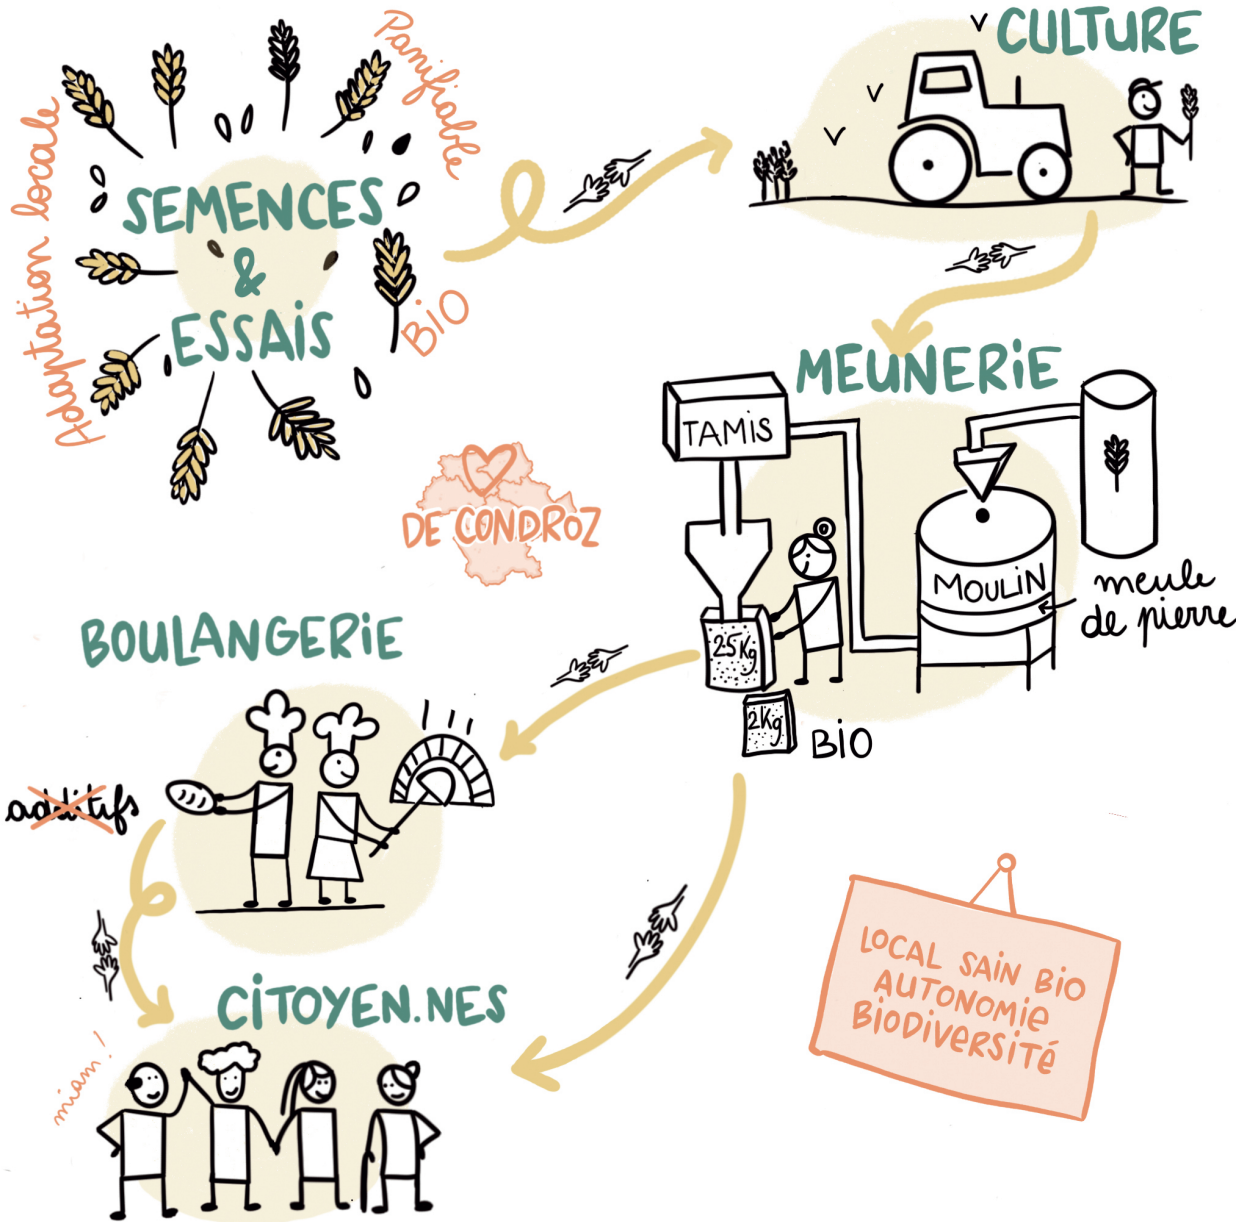 Adaptation locale
Panifiable
SEMENCES
&
ESSAIS
BIO
CULTURE
MEUNERIE
TAMIS
MOULIN
meule
de pierre
25Kg
2Kg
BIO
DE CONDROZ
BOULANGERIE
additifs
CITOYEN.NES
miam !
LOCAL SAIN BIO
AUTONOMIE
BIODIVERSITÉ